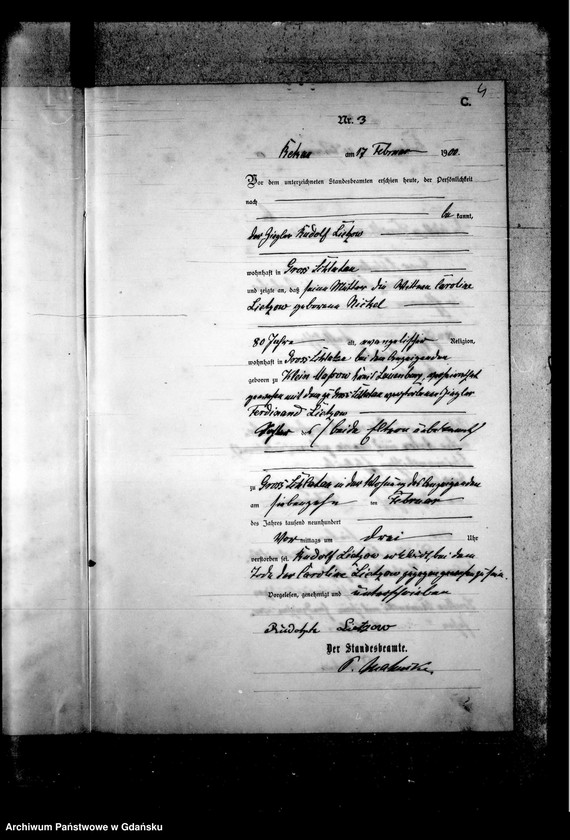 4
C.
Nr. 3
am 17 Februar 1900.
Vor dem unterzeichneten Standesbeamten erschien heute, der Persönlichkeit
nach
be kannt,
der Ziegler Rudolf Lietzow
wohnhaft in Gross Schlatau
und zeigte an, daß seine Mutter die Wittwe Caroline
Lietzow geborene Nickel
80 Jahre alt, evangelischer Religion,
wohnhaft in Gross Schlatau bei dem Anzeigenden
geboren zu Klein Massow Kreis Lauenburg, verheirathet
gewesen mit dem zu Gross Schlatau verstorbenen Ziegler
Ferdinand Lietzow
Tochter des beide Eltern unbekannt
zu Gross Schlatau in der Wohnung des Anzeigenden
am siebenzehn ten Februar
des Jahres tausend neunhundert
Vor mittags um drei Uhr
verstorben sei. Rudolf Lietzow erklärt, bei dem
Tode der Caroline Lietzow zugegen gewesen zu sein.
Vorgelesen, genehmigt und unterschrieben
Lietzow
Der Standesbeamte.
Archiwum Państwowe w Gdańsku